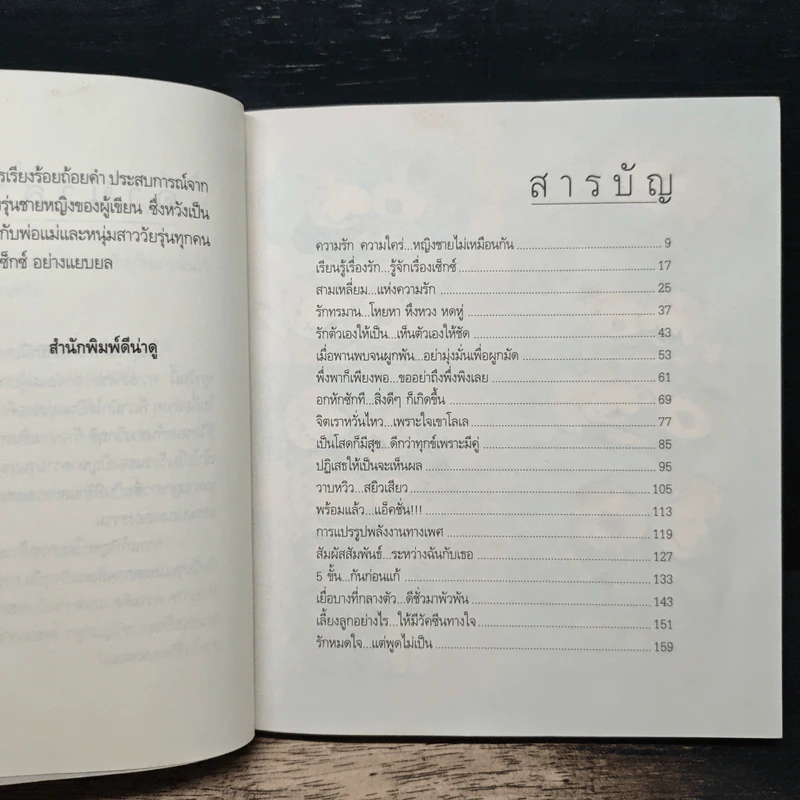 รเรียงร้อยถ้อยคำ ประสบการณ์จาก
รุ่นชายหญิงของผู้เขียน ซึ่งหวังเป็น
กับพ่อแม่และหนุ่มสาววัยรุ่นทุกคน
ซ็กซ์ อย่างแยบยล
สำนักพิมพ์ดีน่าดู
สารบัญ
ความรัก ความใคร่...หญิงชายไม่เหมือนกัน 9
เรียนรู้เรื่องรัก...รู้จักเรื่องเซ็กซ์ 17
สามเหลี่ยม...แห่งความรัก 25
รักทรมาน...โหยหา หึงหวง หดหู่ 37
รักตัวเองให้เป็น...เห็นตัวเองให้ชัด 43
เมื่อพานพบจนผูกพัน...อย่ามุ่งมั่นเพื่อผูกมัด 53
พึ่งพาก็เพียงพอ...ขออย่าถึงพึ่งพิงเลย 61
อกหักซักที...สิ่งดีๆ ก็เกิดขึ้น 69
จิตเราหวั่นไหว...เพราะใจเขาโลเล 77
เป็นโสดก็มีสุข...ดีกว่าทุกข์เพราะมีคู่ 85
ปฏิเสธให้เป็นจะเห็นผล 95
วาบหวิว...สยิวเสียว 105
พร้อมแล้ว...แอ็คชั่น!!! 113
การแปรรูปพลังงานทางเพศ 119
สัมผัสสัมพันธ์...ระหว่างฉันกับเธอ 127
5 ขั้น...กันก่อนแก้ 133
เยื่อบางที่กลางตัว...ดีชั่วมาพัวพัน 143
เลี้ยงลูกอย่างไร...ให้มีวัคซีนทางใจ 151
รักหมดใจ...แต่พูดไม่เป็น 159